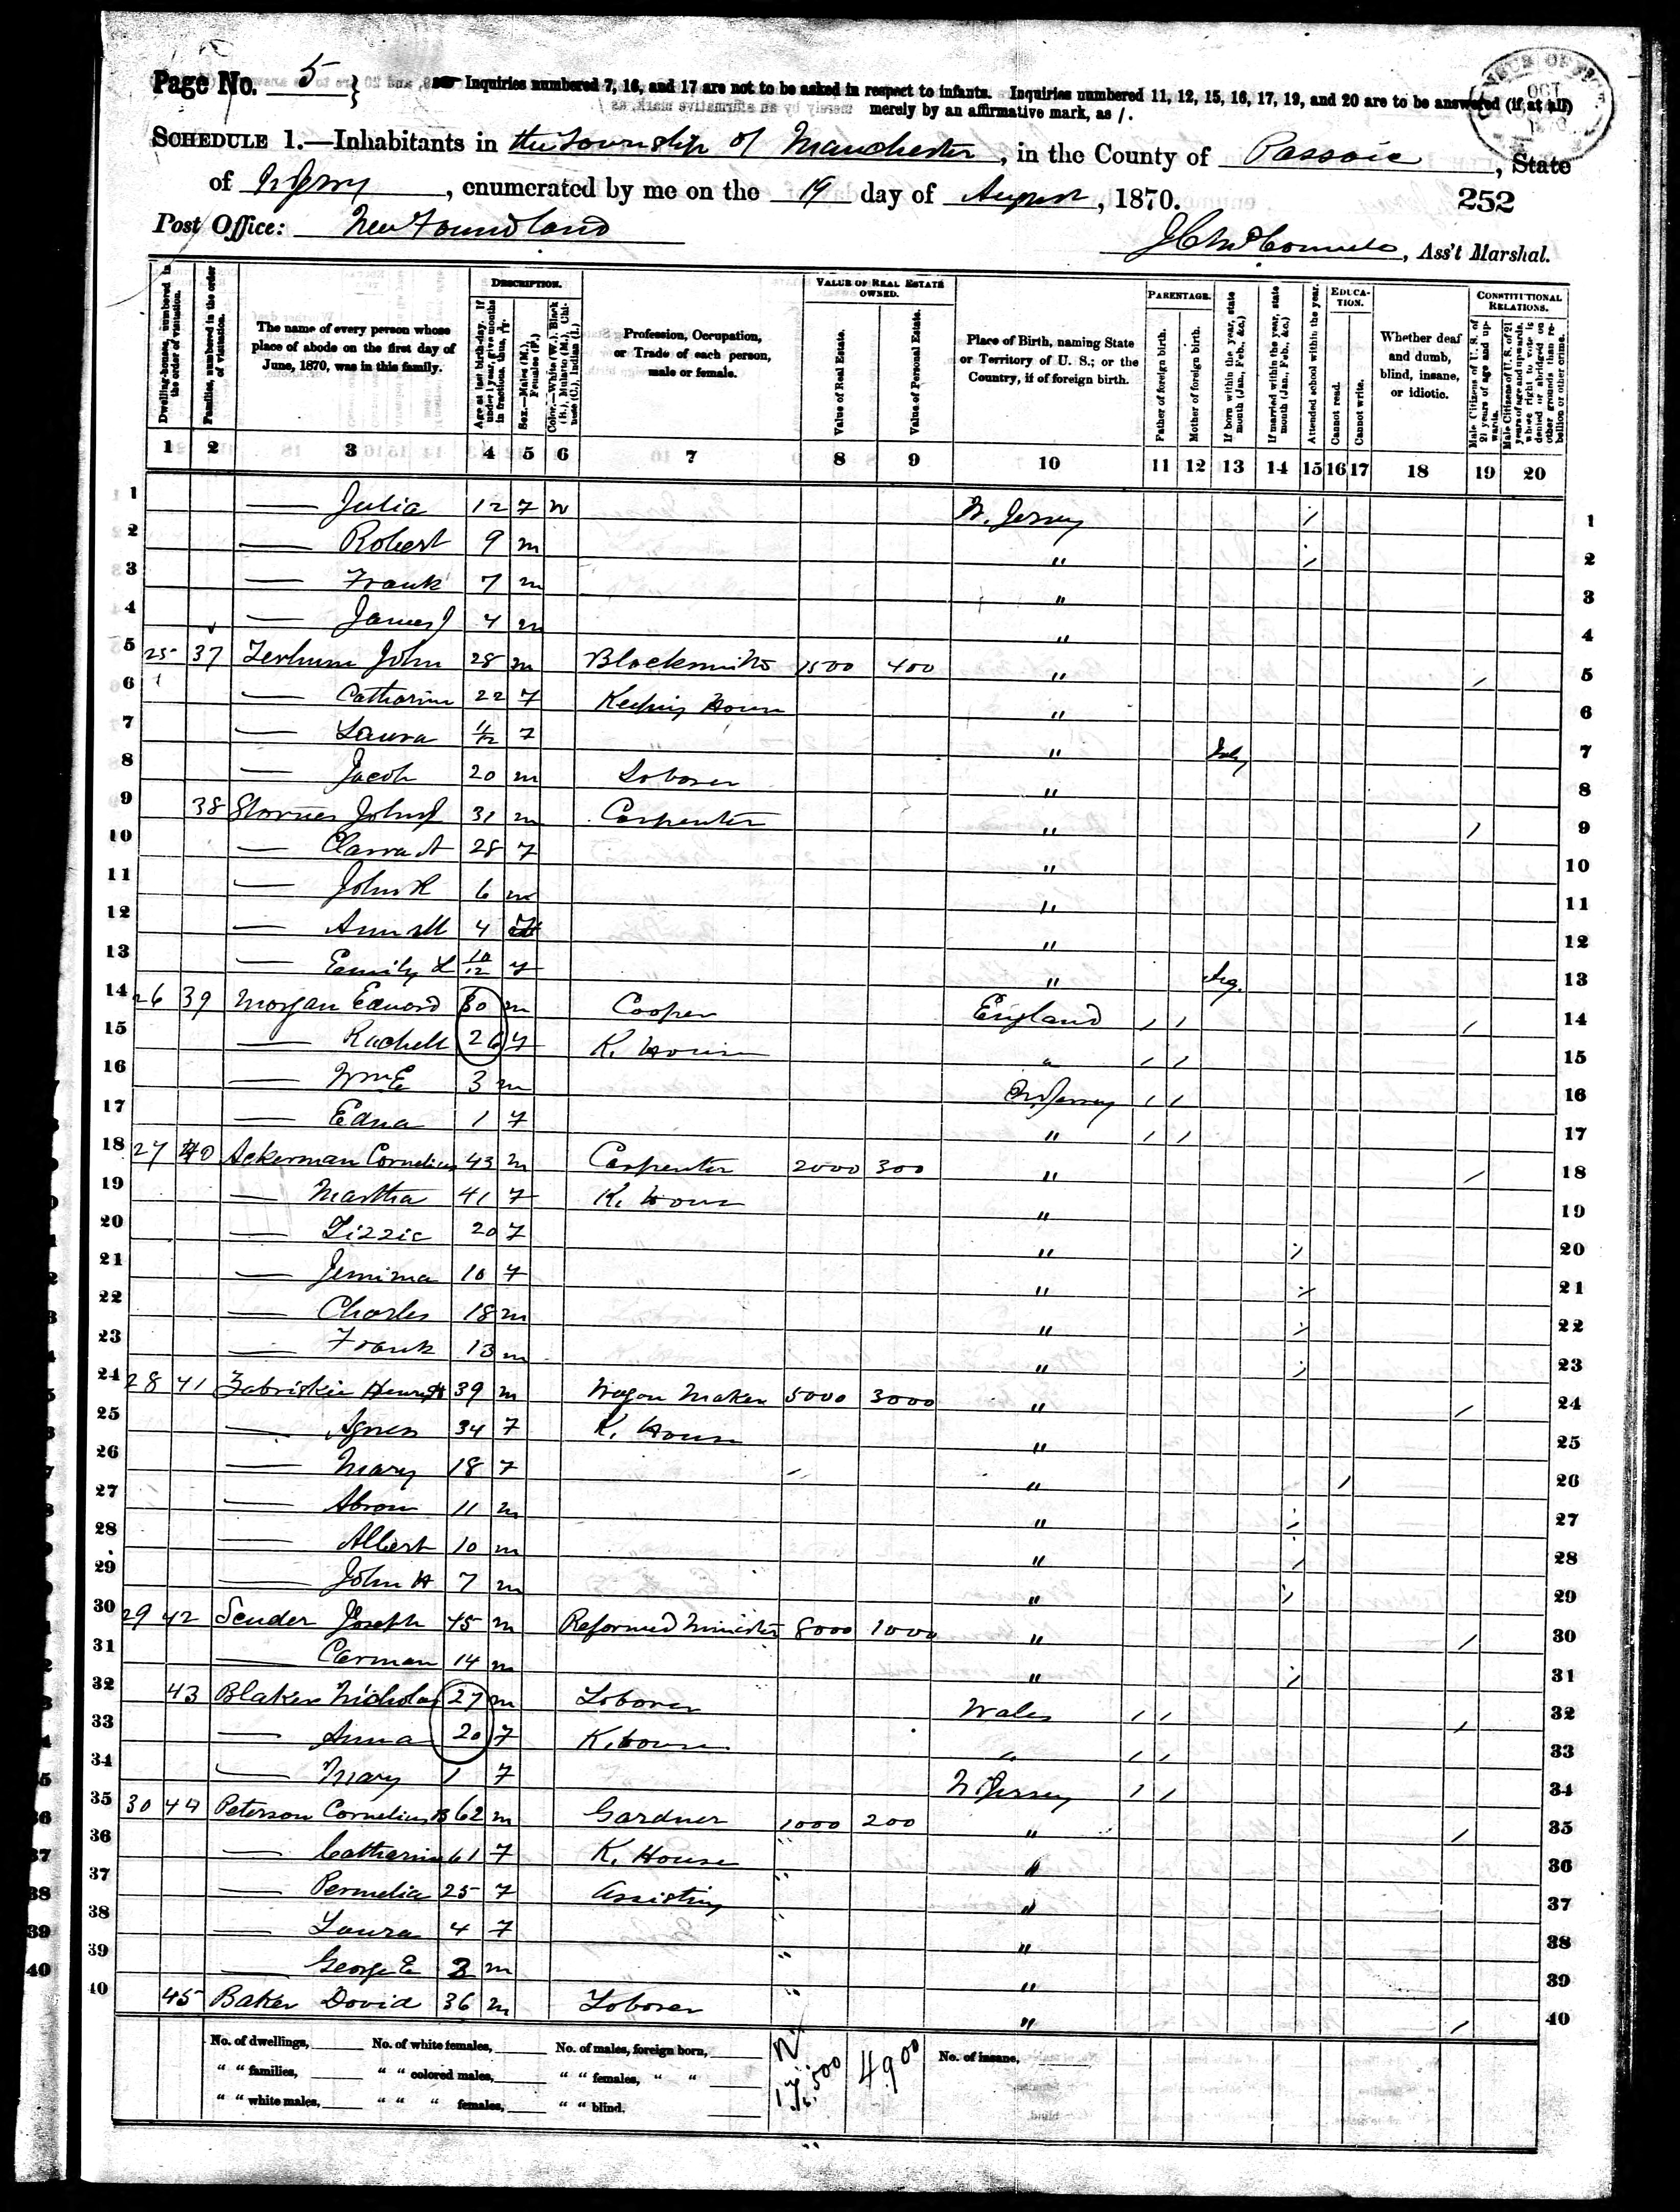 Page No. 5 } Inquiries numbered 7, 16, and 17 are not to be asked in respect to infants. Inquiries numbered 11, 12, 15, 16, 17, 19, and 20 are to be answered (if at all)
merely by an affirmative mark, as /.
SCHEDULE 1.—Inhabitants in the Township of Manchester, in the County of Passaic, State
of N Jersy, enumerated by me on the 19 day of August, 1870.
252
Post Office: New Foundland
Ass't Marshal.
Dwelling-houses, numbered in the order of visitation.
Families, numbered in the order of visitation.
The name of every person whose place of abode on the first day of June, 1870, was in this family.
DESCRIPTION.
Age at last birth-day. If under 1 year, give months in fractions, thus, 3/12.
Sex.—Males (M.), Females (F.)
Color.—White (W.), Black (B.), Mulatto (M.), Chinese (C.), Indian (I.)
Profession, Occupation, or Trade of each person, male or female.
VALUE OF REAL ESTATE OWNED.
Value of Real Estate.
Value of Personal Estate.
Place of Birth, naming State or Territory of U. S.; or the Country, if of foreign birth.
PARENTAGE.
Father of foreign birth.
Mother of foreign birth.
If born within the year, state month (Jan., Feb., &c.)
If married within the year, state month (Jan., Feb., &c.)
Attended school within the year.
EDUCATION.
Cannot read.
Cannot write.
Whether deaf and dumb, blind, insane, or idiotic.
CONSTITUTIONAL RELATIONS.
Male Citizens of U. S. of 21 years of age and upwards.
Male Citizens of U. S. of 21 years of age and upwards, whose right to vote is denied or abridged on other grounds than rebellion or other crime.
1 2 3 4 5 6 7 8 9 10 11 12 13 14 15 16 17 18 19 20
1 — Julia 12 F W N. Jersey / 1
2 — Robert 9 m " / 2
3 — Frank 7 m " 3
4 — James J 4 m " 4
5 25 37 Terhune John 28 m Blacksmith 1500 400 " / 5
6 — Catharine 22 F Keeping House " 6
7 — Laura 11/12 F " July 7
8 — Jacob 20 m Laborer " 8
9 38 John J 31 m Carpenter " / 9
10 — Clarra A 28 F " 10
11 — John R 6 m " 11
12 — Ann M 4 F " 12
13 — Emily L 10/12 F " Aug. 13
14 26 39 Morgan Edward 30 m Cooper England / / / 14
15 — Rachell 26 F K. House " / / 15
16 — Wm E 3 m N. Jersey / / 16
17 — Edna 1 F " / / 17
18 27 40 Ackerman Cornelius 43 m Carpenter 2000 300 " / 18
19 — Martha 41 F K. House " 19
20 — Lizzie 20 F " / 20
21 — Jemima 10 F " / 21
22 — Charles 18 m " / 22
23 — Frank 13 m " / 23
24 28 41 Zabriskie Henry H 39 m Wagon Maker 5000 3000 " / 24
25 — Agnes 34 F K. House " 25
26 — Mary 18 F " / 26
27 — Abram 11 m " / 27
28 — Albert 10 m " / 28
29 — John H 7 m " / 29
30 29 42 Scuder Joseph 45 m Reformed Minister 8000 1000 " / 30
31 — Clerman 14 m " / 31
32 43 Blaker Nicholas 27 m Laborer Wales / / / 32
33 — Anna 20 F K. House " / / 33
34 — Mary 1 F N. Jersey / / 34
35 30 44 Peterson Cornelius B 62 m Gardner 1000 200 " / 35
36 — Catharine 61 F K. House " 36
37 — Permelia 25 F Assisting " 37
38 — Laura 4 F " 38
39 — George E 3 m " 39
40 45 Baker David 36 m Laborer " / 40
No. of dwellings, No. of white females, No. of males, foreign born, No. of insane,
" " families, " " colored males, " " females, " "
" " white males, " " " females, " " blind.
4900